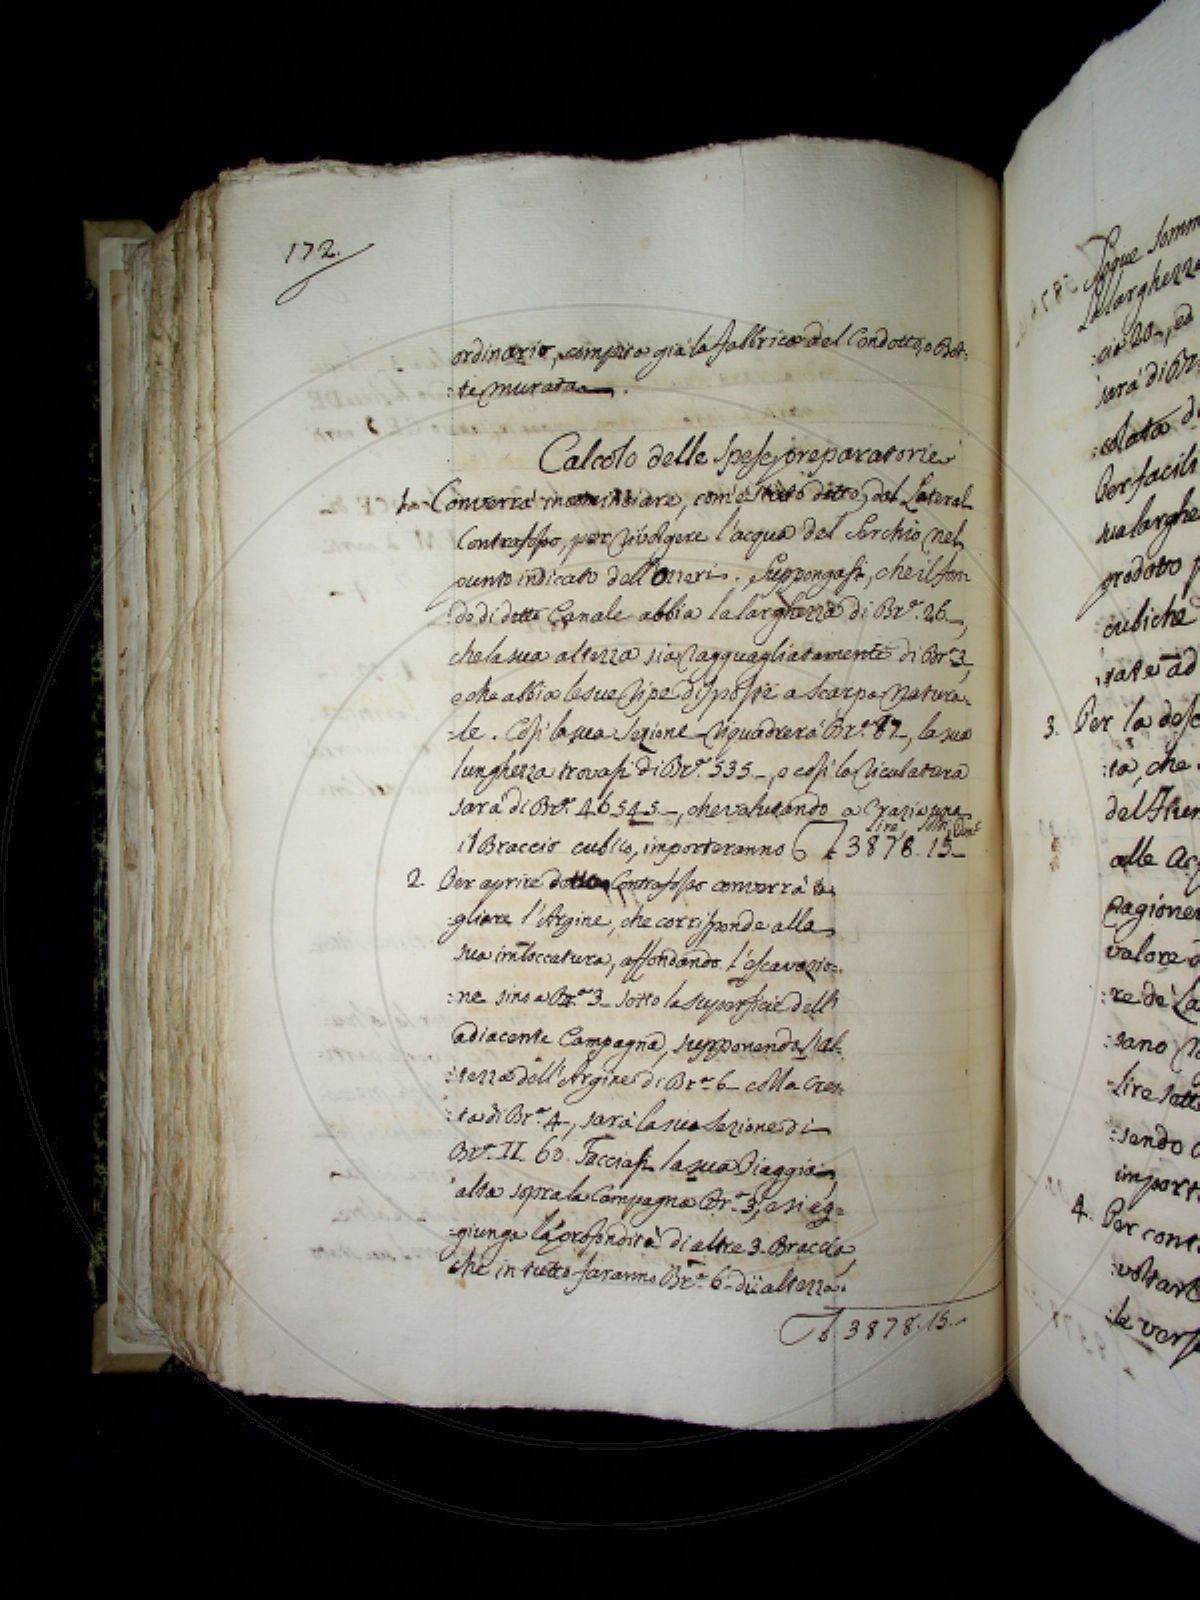 172.
ordinario, compita già la fabbrica del Condotto, o Bot-
:te murata.
Calcolo delle Spese preparatorie
1. Converrà incominciare, com'è stato detto, dal Lateral
Contrafosso, per rivolgere l'acqua del Serchio nel
punto indicato dall'Ximenes. Suppongasi, che il fon-
:do di detto Canale abbia la larghezza di Br.ª 26.,
che la sua altezza sia ragguagliatamente di Br.ª 3,
e che abbia le sue ripe disposte a scarpa natura-
:le. Così la sua Sezione riquadrerà Br.ª 87., la sua
lunghezza trovasi di Br.ª 535., e così la
sarà di Br.ª 46545., che valutando a Crazie una
il Braccio cubico, importeranno
lire, soldi, Den.
£ 3878. 15._
2. Per aprire detto Contrafosso converrà ta-
gliare l'Argine, che corrisponde alla
sua imboccatura, affondando l'escavazio-
:ne sino a Br.ª 3. sotto la superficie dell'
adiacente Campagna, supponendo l'al-
:tezza dell'Argine di Br.ª 6. colla Cres-
:ta di Br.ª 4., sarà la sua Sezione di
Br.ª II. 60. Facciasi la sua Piaggia
alta sopra la Campagna Br.ª 3, e si ag=
:giunga la profondità di altre 3. Braccia,
che in tutto saranno Br.ª 6. di altezza.
£ 3878. 15._
Segue Somm
La larghezza
:cia 20., ed
sarà di Br.
:colata d
Per facili
sua larghe
prodotto p
cubiche
:rate ad
3. Per la des
:ta, che
alle Acq
Ragioner
valore d
:re de' La
:sano
:lire sette
:sendo
import
4. Per cont
:voltar
:le vers